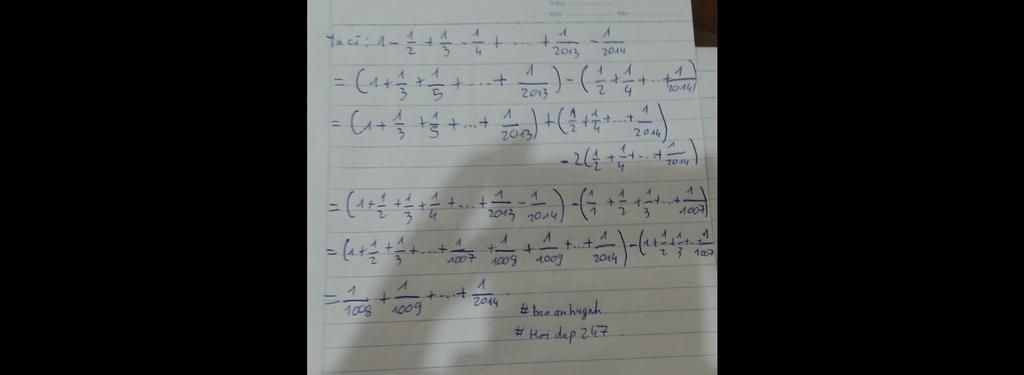 Ta có: 1 - 1/2 + 1/3 - 1/4 + ..... + 1/2013 - 1/2014
= (1 + 1/3 + 1/5 + ...+ 1/2013) - (1/2 + 1/4 + ..+ 1/2014)
= (1 + 1/3 + 1/5 + ...+ 1/2013) + (1/2 + 1/4 + ...+ 1/2014)
- 2(1/2 + 1/4 + ...+ 1/2014)
= (1 + 1/2 + 1/3 + 1/4 + ...+ 1/2013 - 1/2014) - (1/1 + 1/2 + 1/3 + ...+ 1/1007)
= (1 + 1/2 + 1/3 + ...+ 1/1007 + 1/1008 + 1/1009 + ...+ 1/2014) - (1 + 1/2 + 1/3 + ...+ 1/1007
= 1/1008 + 1/1009 + ...+ 1/2014
#baoanhuynh
#Hoidap247